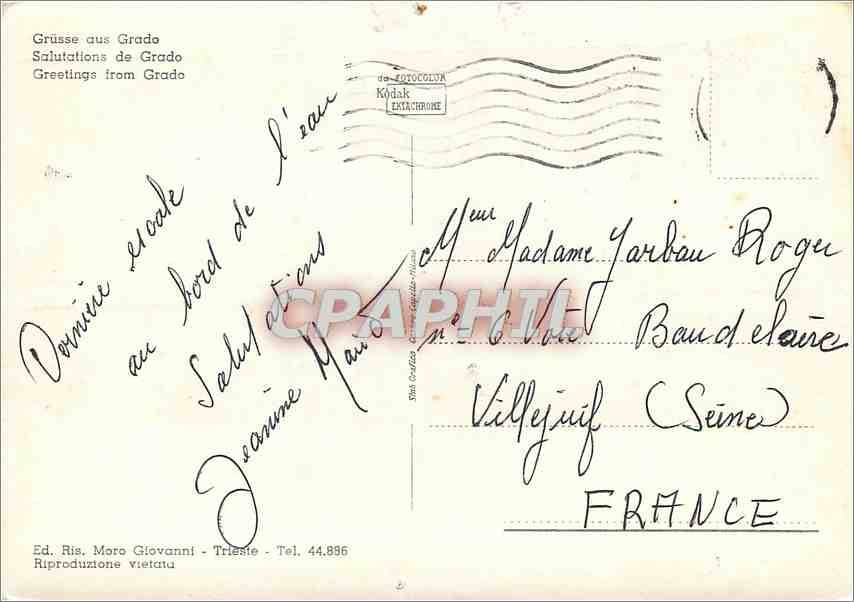 Grüsse aus Grado
Salutations de Grado
Greetings from Grado
da FOTOCOLOR
Kodak
EKTACHROME
Dernière escale
au bord de l'eau
Salutations
Jeanine
Meur Madame Jarbau Roger
n° 6 Voie Baudelaire
Villejuif (Seine)
FRANCE
CPAPHIL
Stab Grafico Cesare Capello-Milano
Ed. Ris. Moro Giovanni - Trieste - Tel. 44.886
Riproduzione vietata